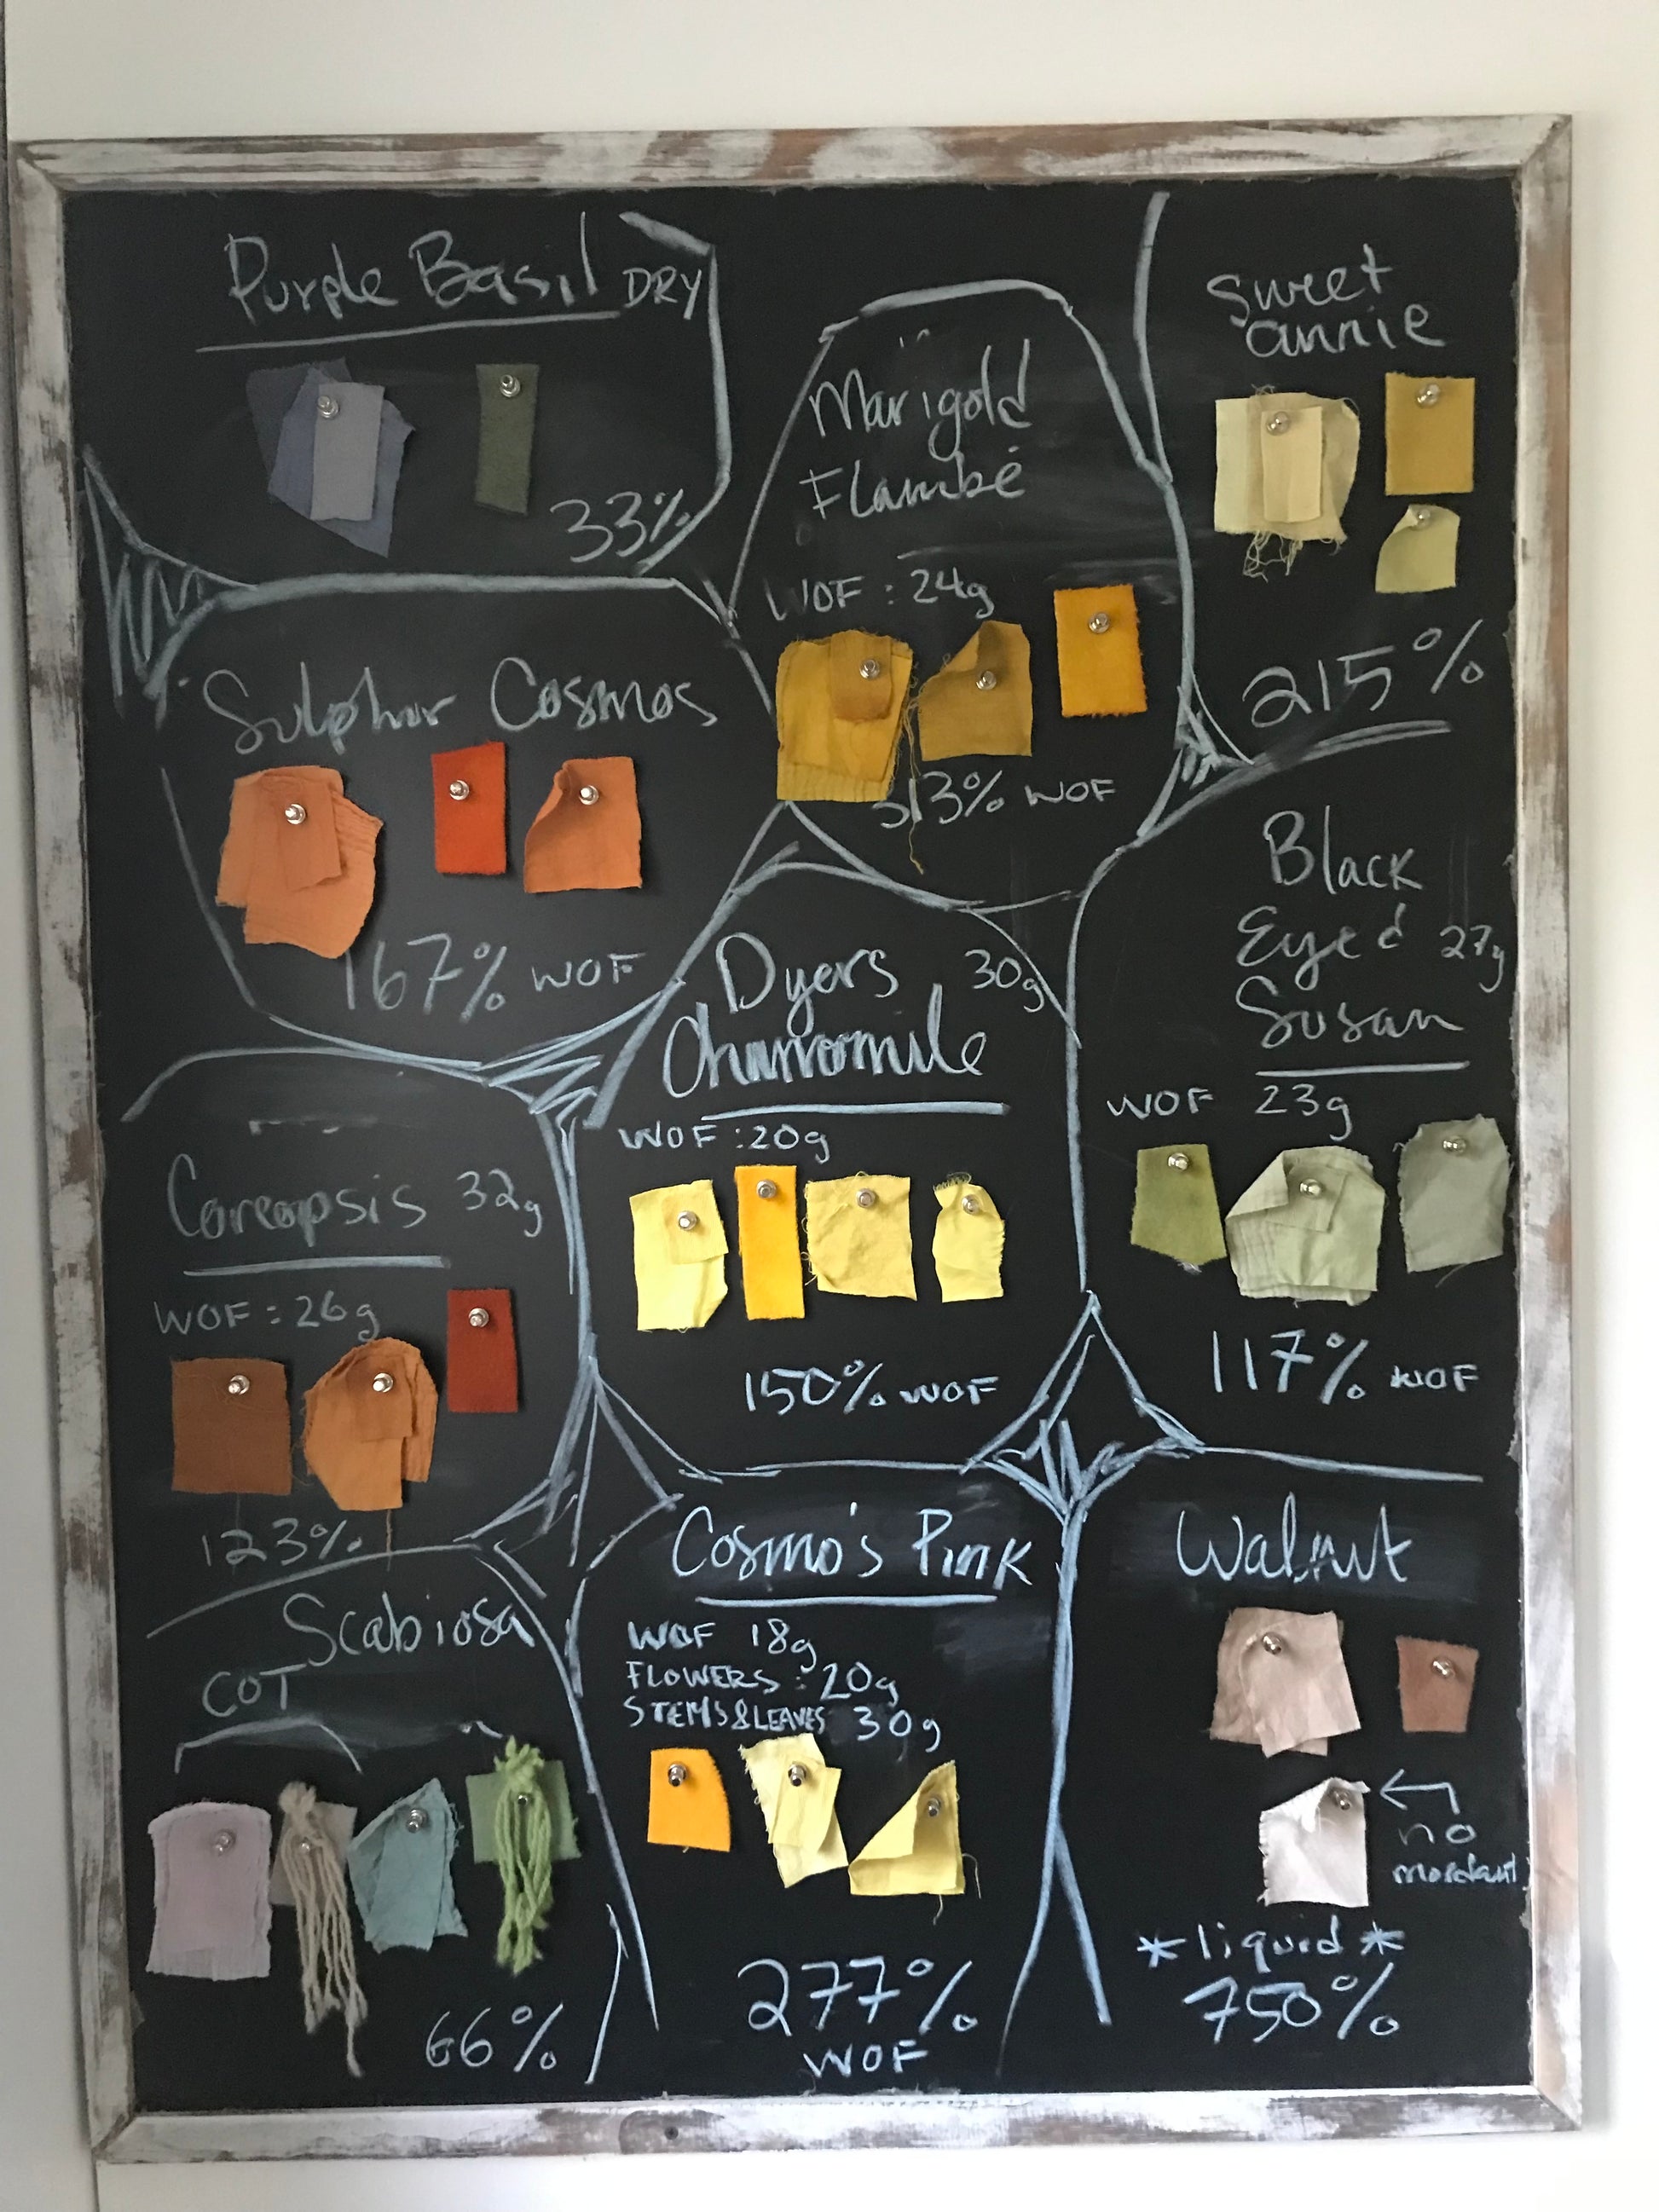 Purple Basil DRY
33%
Marigold
Flambé
WOF : 24g
313% WOF
Sweet
annie
215%
Sulphur Cosmos
167% WOF
Dyers 30g
Chamomile
WOF : 20g
150% WOF
Black
Eyed 27g
Susan
WOF 23g
117% WOF
Coreopsis 32g
WOF : 26g
123%
Scabiosa
COT
66%
Cosmo's Pink
WOF 18g
FLOWERS : 20g
STEMS & LEAVES 30g
277%
WOF
Walnut
no
mordant
*liquid*
750%